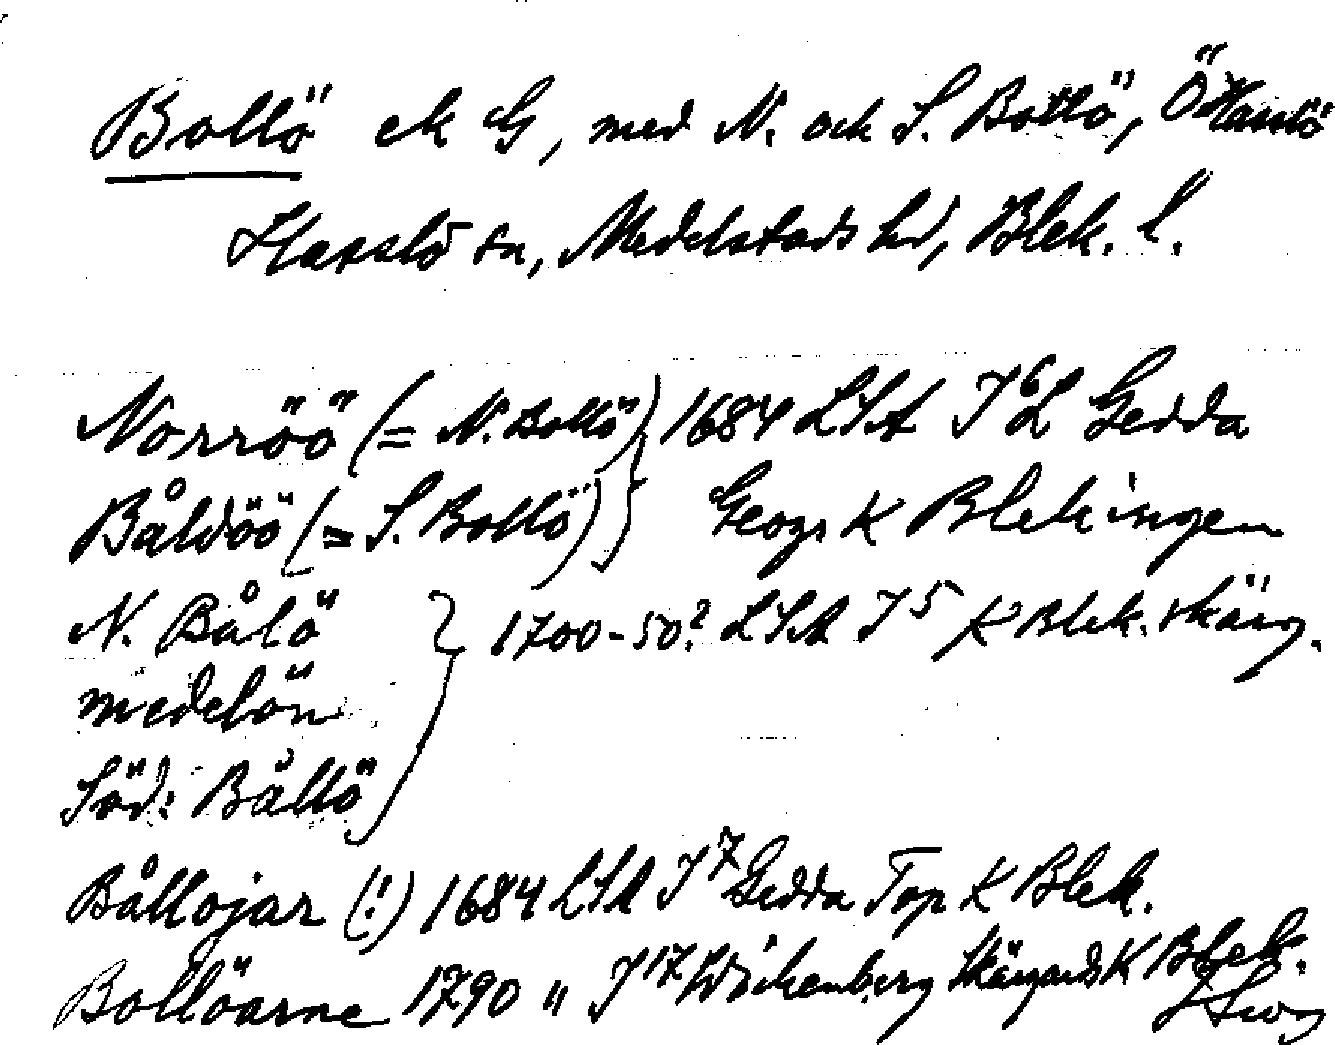 Bollö ek G, med N. och S. Bollö, Ö Hasslö
Hasslö sn, Medelstads hd, Blek. l.
Norröö (= N. Bollö) } 1684 LSA J⁶L Gedda
Båldöö (= S. Bollö) } Geogr K Blekingen
N. Bålö } 1700-50? LSA J⁵ K Blek. skärg.
medelön
Söd: Bållö
Bållojar (!) 1684 LSA J⁷ Gedda Top K Blek.
Bollöarne 1790 " J¹⁷ Wickenberg Skärgårds K Blek.